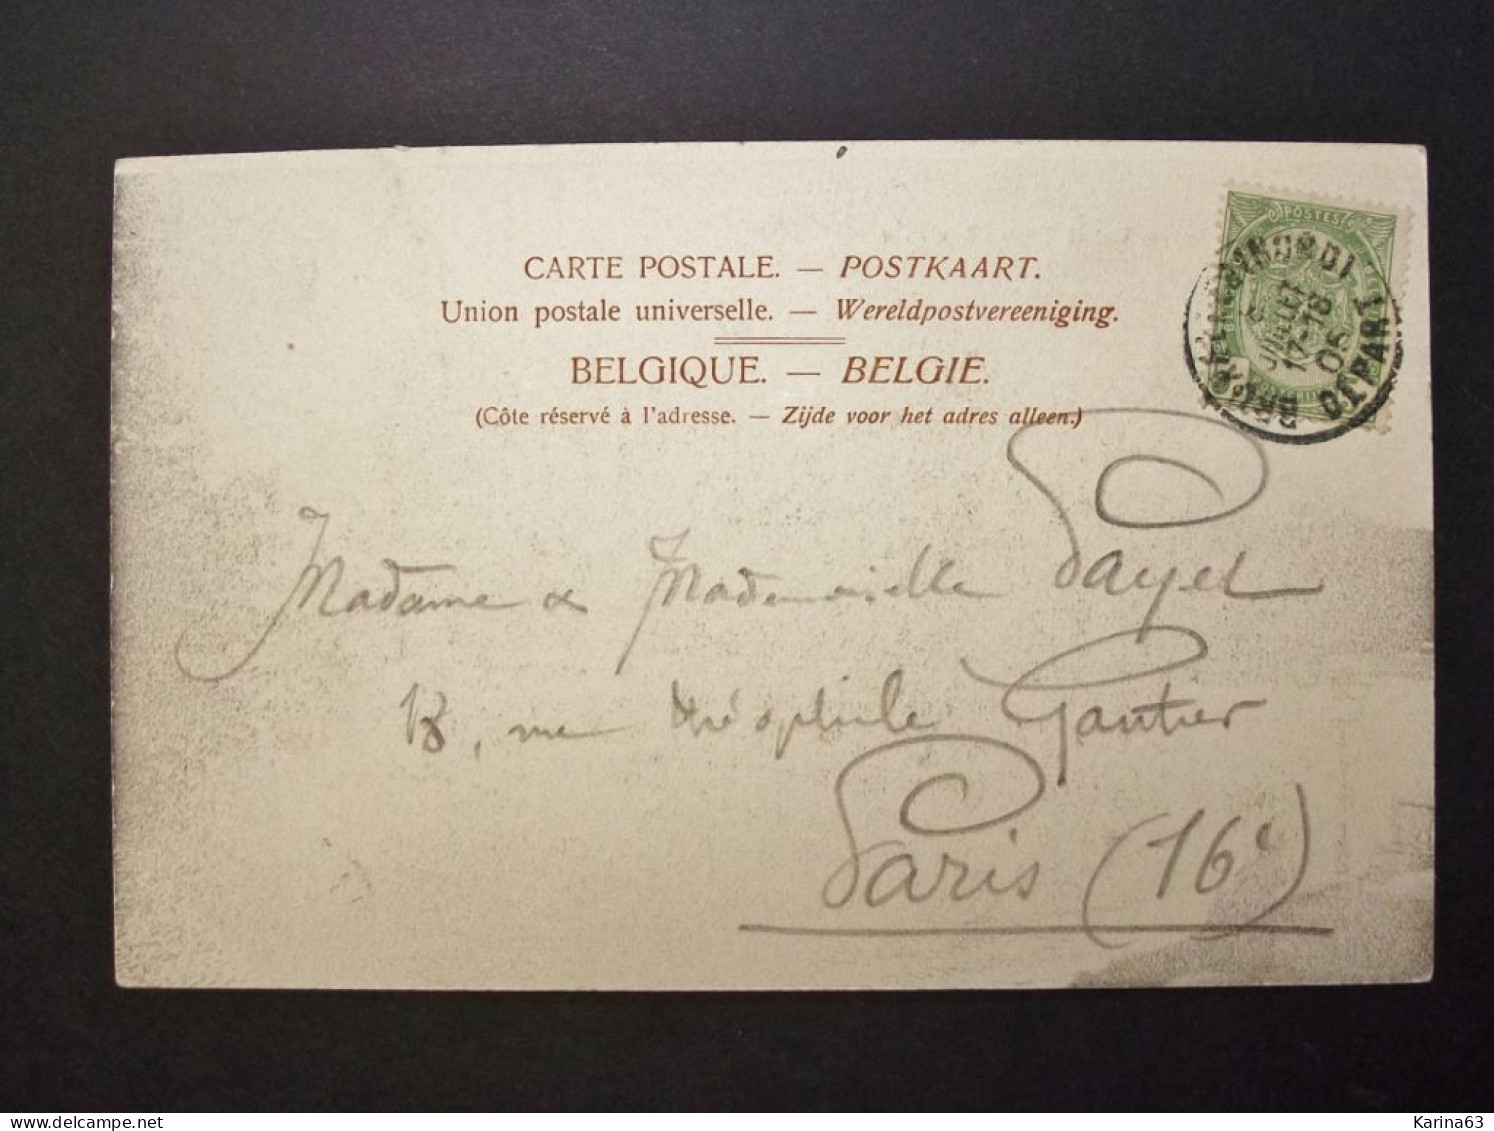 CARTE POSTALE. — POSTKAART.
Union postale universelle. — Wereldpostvereeniging.
BELGIQUE. — BELGIE.
(Côte réservé à l'adresse. — Zijde voor het adres alleen.)
POSTES
(NORD)
JUILLET
17-18
DÉPART
Madame & Mademoiselle Payel
18, rue théophile Gautier
Paris (16e)
Karina63